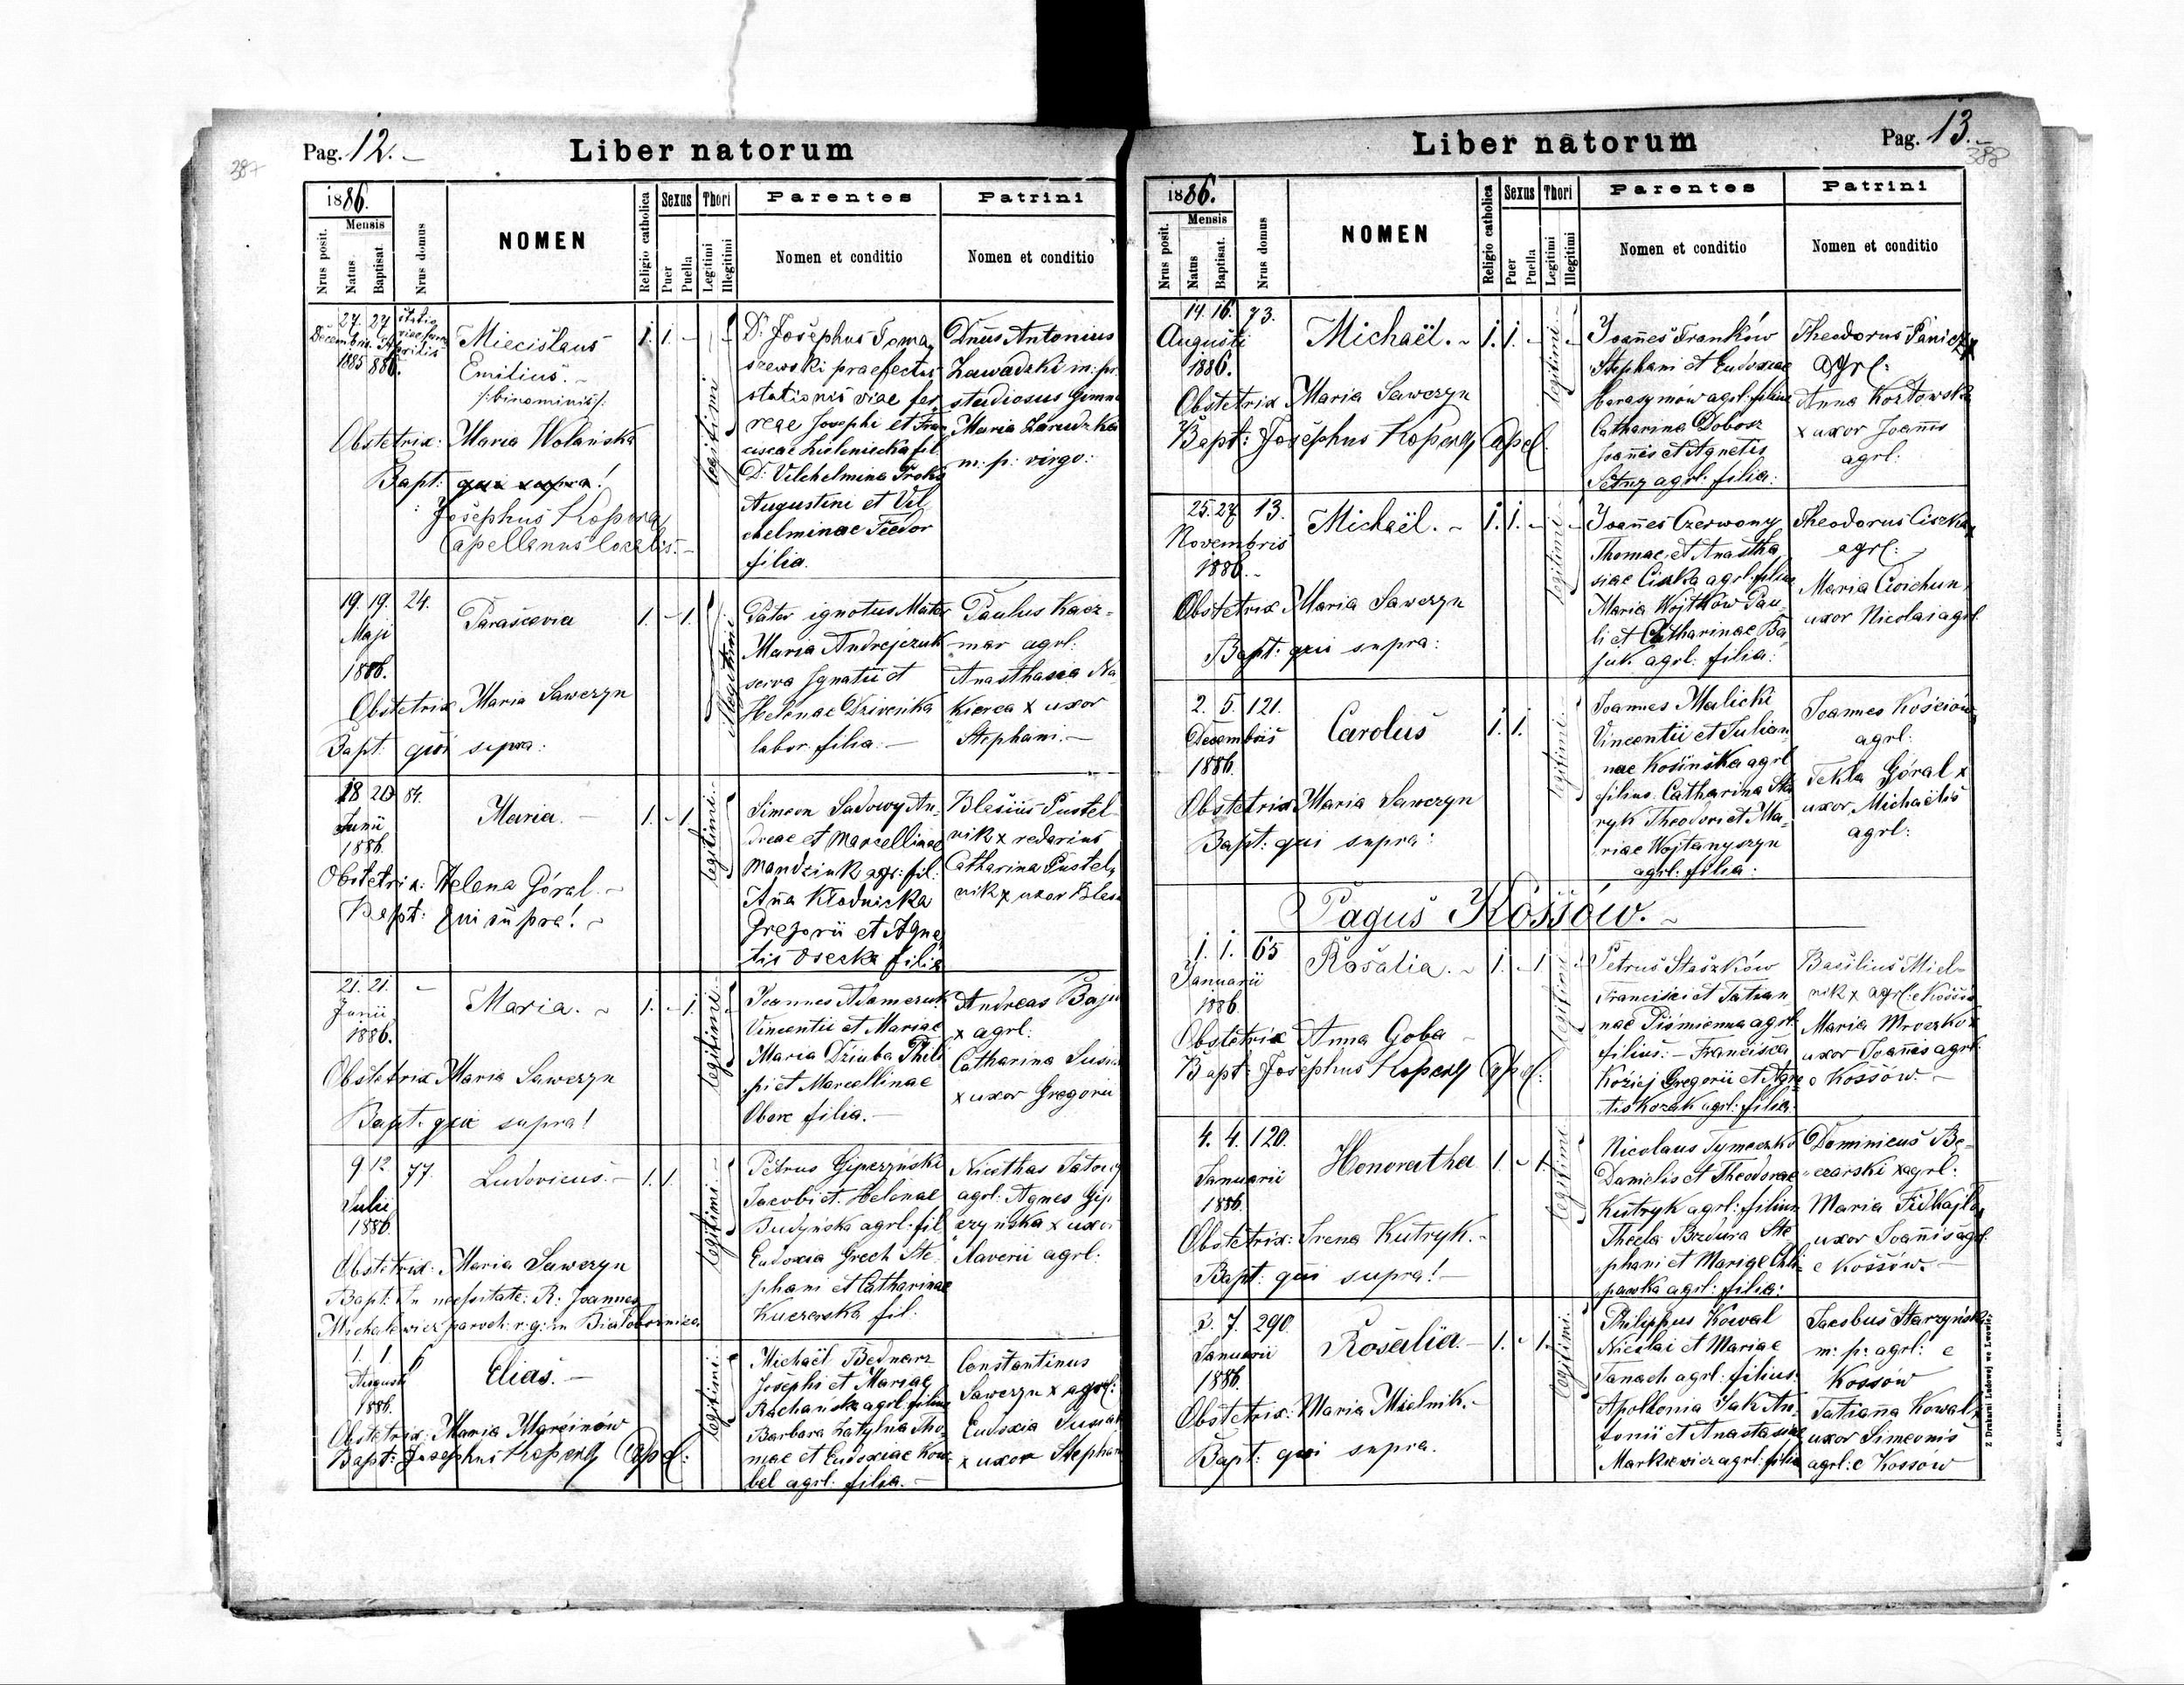 Pag. 12. –
Liber natorum
387
1886.
Mensis
Nrus posit.
Natus
Baptisat.
Nrus domus
NOMEN
Religio catholica
Sexus
Puer
Puella
Thori
Legitimi
Illegitimi
Parentes
Nomen et conditio
Patrini
Nomen et conditio
27. 27
Decembris Aprilis
1885 886.
Miecislaus
Emilius. –
/:binominis/:
1. 1. –
legitimi
Obstetrix: Maria Wolańska
Bapt: qui supra!
Josephus Kopera
Capellanus localis. –
D: Josephus Toma
szewski praefectus
stationis viae fer
reae Josephi et Fran
ciscae Zieleniecka fil.
D: Vilchelmina Troks
Augustini et Vil
chelminae Teodor
filia.
Dnus Antonius
Zawadzki m: pr.
studiosus Gimna
Maria Zarudzka
m: p: virgo:
19. 19. 24.
Maji
1886.
Parascevia
1. – 1.
Illegitimi
Obstetrix Maria Sawczyn
Bapt: qui supra:
Pater ignotus Mater
Maria Andrejczuk
serva Ignatii et
Helenae Dziwenka
labor. filia. –
Paulus Kacz-
mar agrl:
Anasthasia Na
kierca x uxor
Stephani. –
18 20 84.
Junii
1886
Maria. –
1. – 1
legitimi
Obstetrix: Helena Góral. –
Bapt: qui supra! –
Simeon Sadowy An-
dreae et Marcellinae
Mandziuk agr: fil:
Anna Kłodnicka
Gregorii et Agne
tis Osecka filia
Blasius Pustel-
nik x redarius
Catharina Pustel-
nik x uxor Blasii
21. 21. –
Junii
1886.
Maria. –
1. – 1.
legitimi
Obstetrix Maria Sawczyn
Bapt: qui supra!
Joannes Adamczuk
Vincentii et Mariae
Maria Dziuba Phili
pi et Marcellinae
filia. –
Andreas
x agrl:
Catharina
x uxor Gregorii
9 12. 77.
Julii
1886.
Ludovicus. –
1. 1.
legitimi. –
Obstetrix: Maria Sawczyn
Bapt: In necessitate: R: Joannes
Michalewicz paroch: r: g: in Białobornica
Petrus Gipczyński
Jacobi et Helenae
Budyńska agrl: fil.
Eudoxia Grech Ste
phani et Catharinae
Kuczerska fil:
Nicethas
agrl: Agnes Gip
czyńska x uxor
Xaverii agrl:
1. 1. 6
Augusti
1886.
Elias. –
legitimi. –
Obstetrix: Maria Marcinów
Bapt: Josephus Kopera Capel:
Michaël Bednarz
Josephi et Mariae
Rachańska agrl: filius
Barbara Zatylna Tho-
mae et Eudoxiae Kow
bel agrl: filia. –
Constantinus
Sawczyn x agrl:
Eudoxia
x uxor Stephani
Liber natorum
Pag. 13. –
388
1886.
Mensis
Nrus posit.
Natus
Baptisat.
Nrus domus
NOMEN
Religio catholica
Sexus
Puer
Puella
Thori
Legitimi
Illegitimi
Parentes
Nomen et conditio
Patrini
Nomen et conditio
14. 16. 73.
Augusti
1886.
Michaël. –
1. 1. –
legitimi –
Obstetrix Maria Sawczyn
Bapt: Josephus Kopera Capel.
Joannes Franków
Stephani et Eudoxiae
Harasymów agrl: filius
Catharina Dobosz
Joannis et Agnetis
agrl: filia:
Theodorus
agrl:
Anna Kozłowska
x uxor Joannis
agrl:
25. 27 13.
Novembris
1886. –
Michaël. –
1. 1. –
legitimi –
Obstetrix Maria Sawczyn
Bapt: qui supra:
Joannes Czerwony
Thomae et Anastha
siae Ciska agrl: filius
Maria Wojtków Pau-
li et Catharinae Ba
juk agrl: filia:
Theodorus Ciszka
agrl:
Maria
uxor Nicolai agrl
2. 5. 121.
Decembris
1886.
Carolus
1. 1.
legitimi. –
Obstetrix Maria Sawczyn
Bapt: qui supra:
Joannes Malicki
Vincentii et Julian
nae Kosińska agrl
filius. Catharina Sta
ryk Theodori et Ma-
riae Wojtanyszyn
agrl: filia:
Joannes Kościów
agrl:
Tekla Góral x
uxor Michaëlis
agrl:
Pagus Kossów. –
1. 1. 65
Januarii
1886.
Rosalia. –
1. – 1
legitimi –
Obstetrix Anna Goba –
Bapt: Josephus Kopera Capel:
Petrus Staszków
Francisci et Tatian
nae Piśmienna agrl:
filius. – Francisca
Koziej Gregorii et Agne
tis Kozak agrl: filia.
Basilius Miel-
nik x agrl: e Kossów
Maria Mroczko x
uxor Joannis agrl:
e Kossów. –
4. 4. 120.
Januarii
1886.
Honoratha
1. – 1.
legitimi
Obstetrix: Irena Kutryk. –
Bapt: qui supra! –
Nicolaus Tymeczko
Danielis et Theodorae
Kutryk agrl: filius
Thecla Bzdura Ste
phani et Mariae Chli-
pawka agrl: filia:
Dominicus Be-
czarski x agrl:
Maria
uxor Joannis agrl.
e Kossów. –
3. 7. 290.
Januarii
1886.
Rosalia. –
1. – 1.
legitimi.
Obstetrix: Maria Mielnik. –
Bapt: qui supra.
Philippus Kowal
Nicolai et Mariae
Tanach agrl: filius.
Apollonia Jak An-
tonii et Anastasiae
Markiewicz agrl: filia
Jacobus Starzyński
m: p: agrl: e
Kossów
Tatianna Kowal x
uxor Simeonis
agrl: e Kossów
Z Drukarni Ludowej we Lwowie.